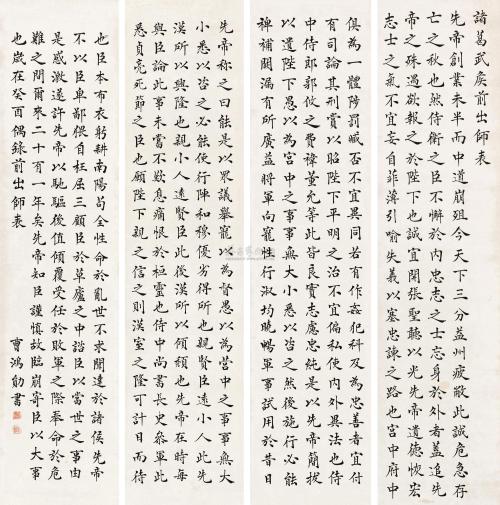 諸葛武侯前出師表
先帝創業未半而中道崩殂今天下三分益州疲敝此誠危急存
亡之秋也然侍衛之臣不懈於內忠志之士忘身於外者蓋追先
帝之殊遇欲報之於陛下也誠宜開張聖聽以光先帝遺德恢宏
志士之氣不宜妄自菲薄引喻失義以塞忠諫之路也宮中府中
俱為一體陟罰臧否不宜異同若有作姦犯科及為忠善者宜付
有司論其刑賞以昭陛下平明之治不宜偏私使內外異法也侍
中侍郎郭攸之費禕董允等此皆良實志慮忠純是以先帝簡拔
以遺陛下愚以為宮中之事事無大小悉以咨之然後施行必能
裨補闕漏有所廣益將軍向寵性行淑均曉暢軍事試用於昔日
先帝稱之曰能是以眾議舉寵以為督愚以為營中之事事無大
小悉以咨之必能使行陣和穆優劣得所也親賢臣遠小人此先
漢所以興隆也親小人遠賢臣此後漢所以傾頹也先帝在時每
與臣論此事未嘗不歎息痛恨於桓靈也侍中尚書長史參軍此
悉貞亮死節之臣也願陛下親之信之則漢室之隆可計日而待
也臣本布衣躬耕南陽苟全性命於亂世不求聞達於諸侯先帝
不以臣卑鄙猥自枉屈三顧臣於草廬之中諮臣以當世之事由
是感激遂許先帝以馳驅後值傾覆受任於敗軍之際奉命於危
難之間爾來二十有一年矣先帝知臣謹慎故臨崩寄臣以大事
也歲在癸酉偶錄前出師表
曹鴻勛書